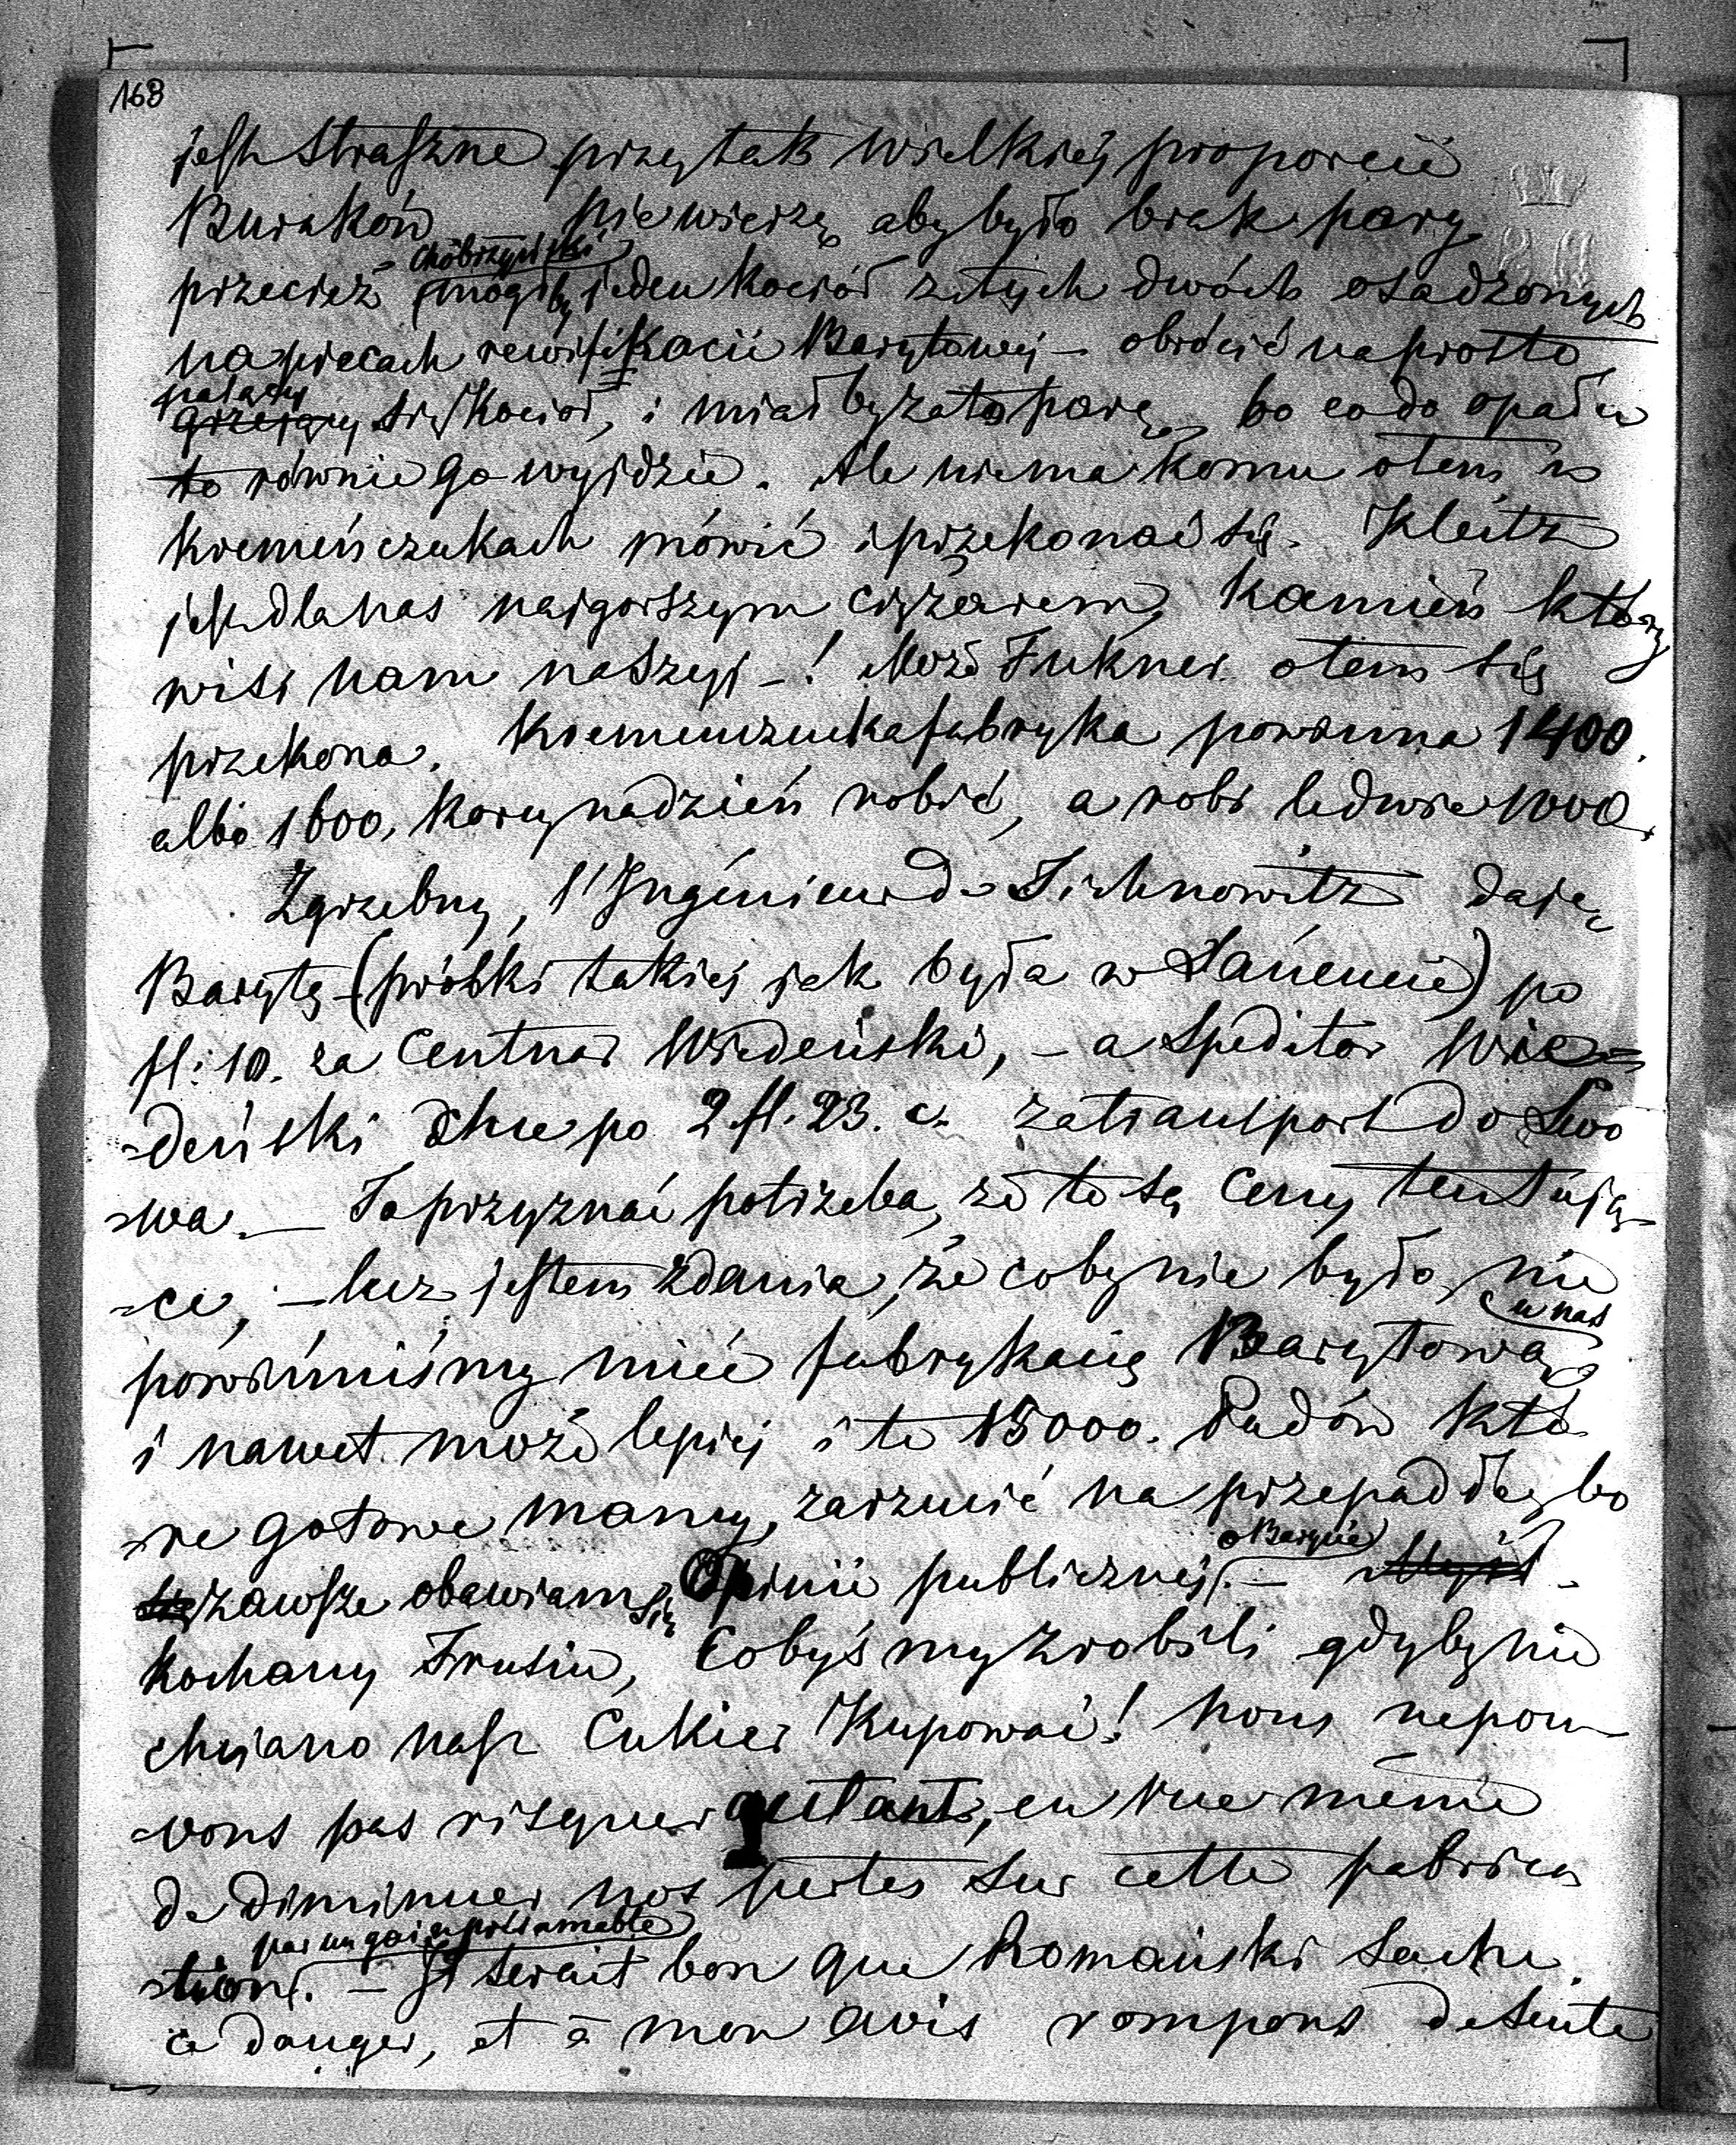 168
jest straszne przy tak wielkiéj proporcii
Buraków Nie wierzę aby było brak pary
Chobrzyński
przecież mógłby jeden kocioł z tych dwóch osadzonych
na piecach rewifikacii Barytowéj – obrócić na prosto
palący
grzejący się Kocioł, i miałby za to parę, bo co do opału
to równie go wyjdzie. Ale niema komu o tem w
Kremeńczukach mówić i przekonać się. Kleitz
jest dla nas najgorszym ciężarem, Kamień który
wisi nam na szyi –! Może Fukner o tem się
przekona. Kremenczucka fabryka powinna 1400.
albo 1600, korcy na dzień robić, a robi ledwie 1000.
Zgrzebny, l'Ingénieur de Sichnowitz daje
Barytę (próbki takiéj jak była w Łańcucie) po
fl: 10. za Centnar Wiedeński, – a Speditor Wie=
=deński chce po 2 fl. 23. c. za transport do Lwo
=wa. – To przyznać potrzeba, że to są Ceny tentują=
=ce, – lecz jestem zdania, że coby nie było, nie
u nas
powinniśmy mieć fabrykacię Barytową
i nawet może lepiéj i te 15000. Pudów któ=
=re gotowe mamy, zarzucić na przepadłe, bo
o Barycie
zawsze obawiam się Opinii publicznéj. – Myśl
Kochany Frusiu, Cobyśmy zrobili gdyby nie
chciano nasz Cukier Kupować! nous ne pou=
=vons pas risquer autant, en vue même
de diminuer nos pertes sur cette fabrica
par un gain présumable
=tion. – Il serait bon que Romański sache
ce danger, et à mon avis rompons de suite